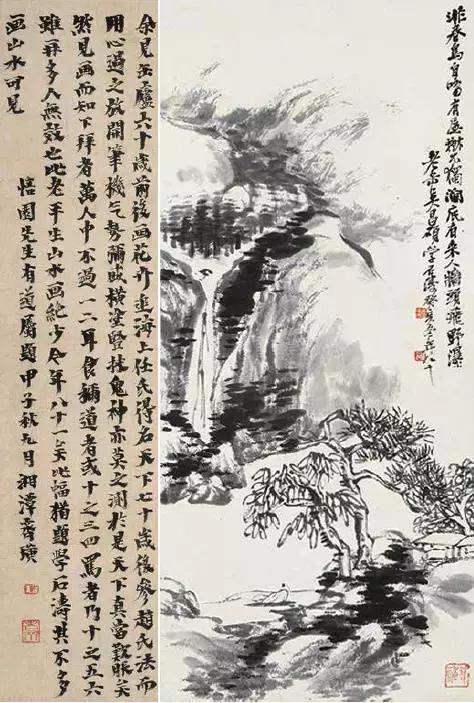 有屋
底有
頭飛野瀑
吳昌碩學石濤癸亥年八十
余見缶廬六十歲前後画花卉追海上任氏得名天下七十歲後參趙氏法而
用心過之放開筆機气勢彌盛橫塗豎抹鬼神亦莫之測於是天下真當眼矣
然見画而知下拜者萬人中不過一二耳食稱道者或十之三四罵者乃十之五六
雖拜多人無也此老平生山水画絶少今年八十一矣此幅猶題學石濤其不多
画山水可見
悟園先生有道屬題 甲子秋九月 湘潭齊璜